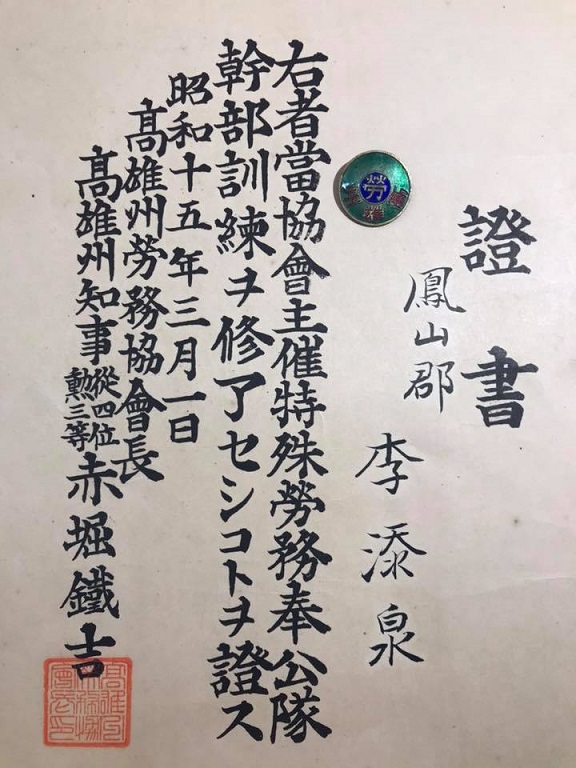 證書
鳳山郡
李添泉
右者當協會主催特殊勞務奉公隊
幹部訓練ヲ修了セシコトヲ證ス
昭和十五年三月一日
高雄州勞務協會長
高雄州知事從四位勲三等赤堀鐵吉
勞